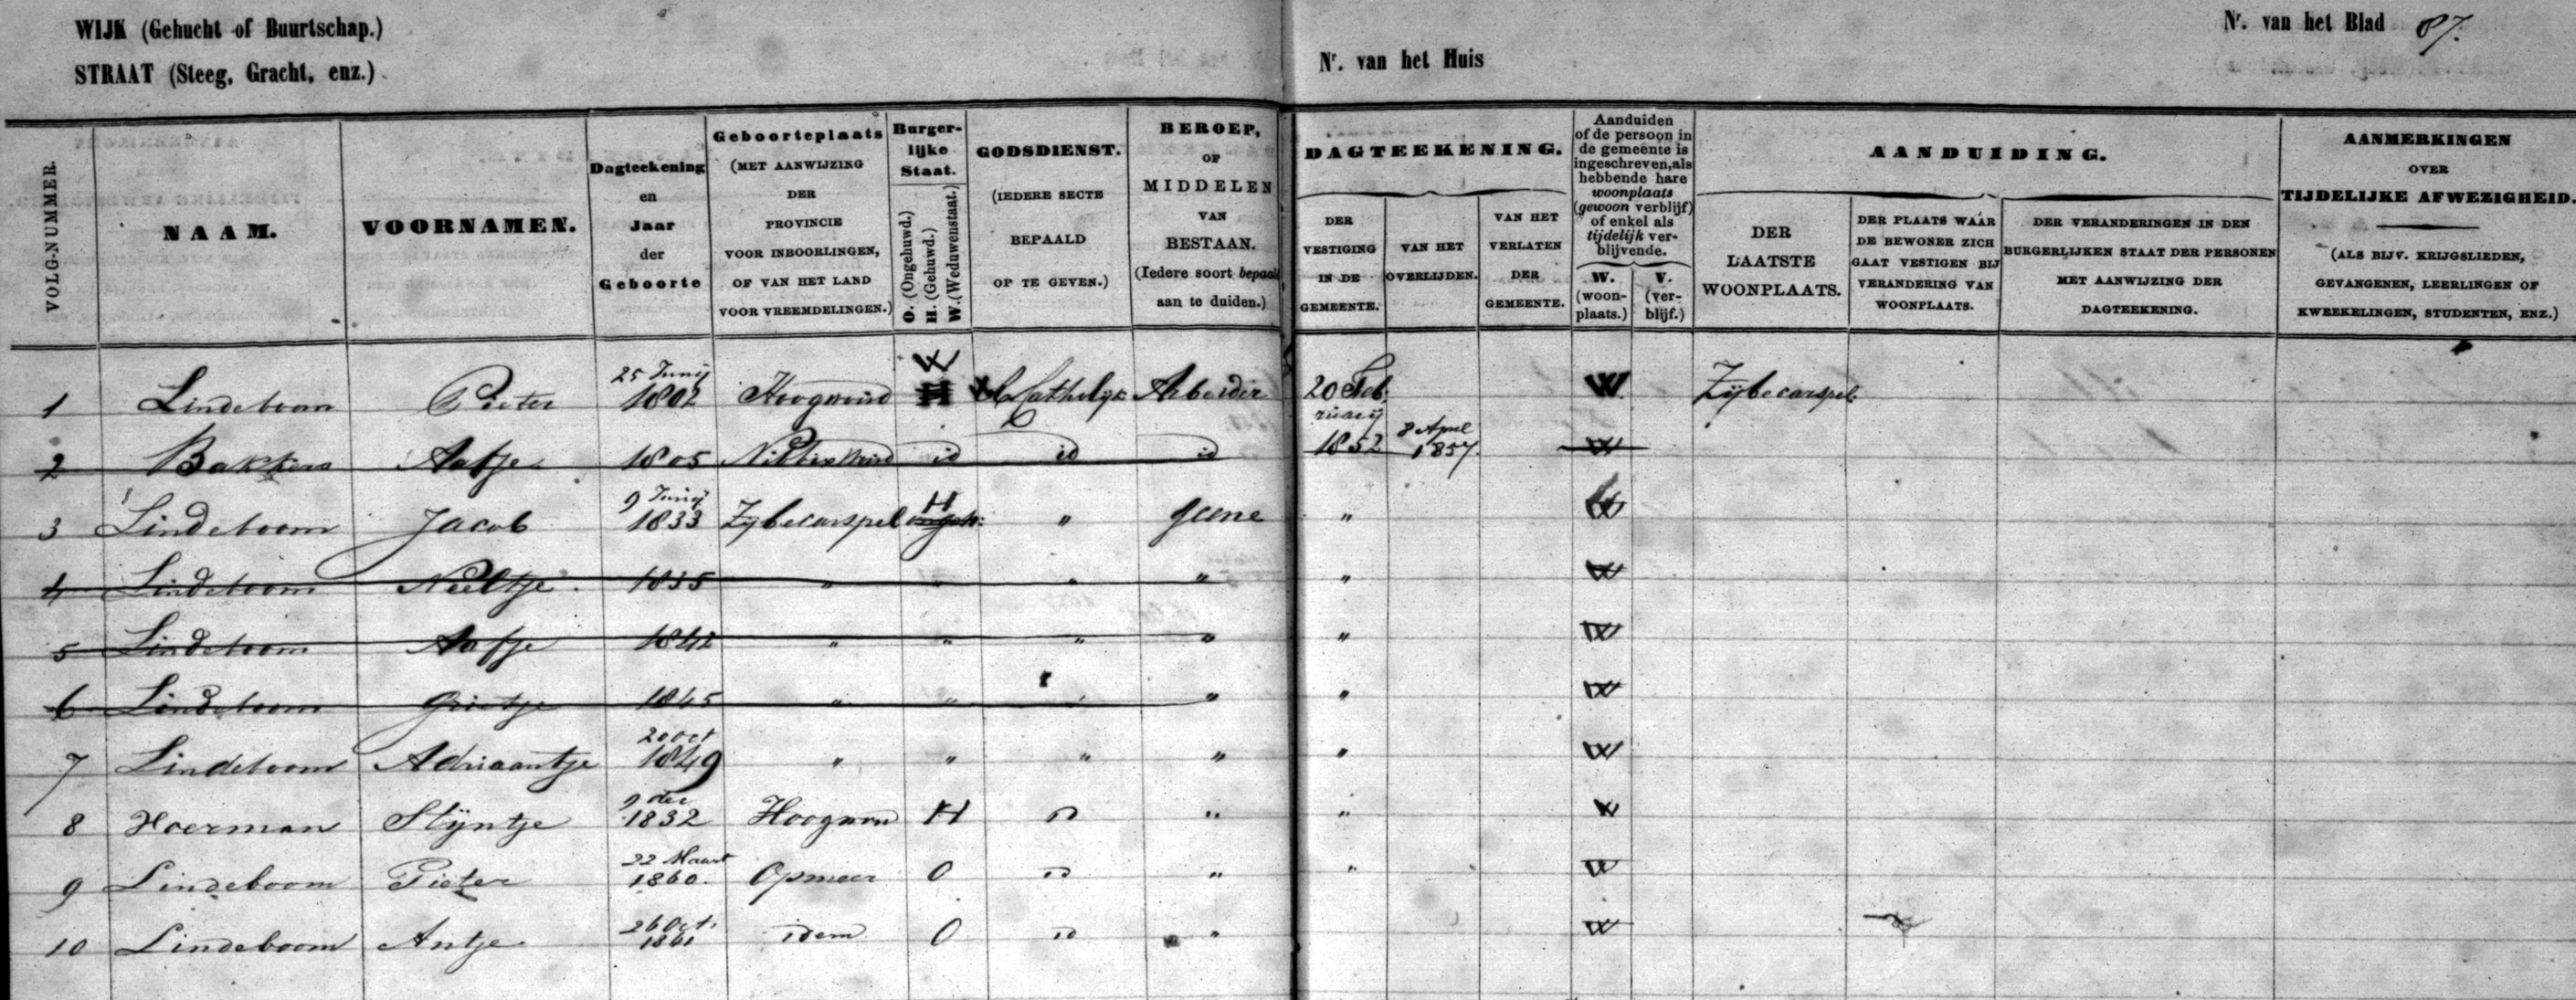 WIJK (Gehucht of Buurtschap.)
STRAAT (Steeg, Gracht, enz.)
Nr. van het Huis
Nr. van het Blad 87.
VOLG-NUMMER.
NAAM.
VOORNAMEN.
Dagteekening
en
Jaar
der
Geboorte
Geboorteplaats
(MET AANWIJZING
DER
PROVINCIE
VOOR INBOORLINGEN,
OF VAN HET LAND
VOOR VREEMDELINGEN.)
Burger-
lijke
Staat.
O. (Ongehuwd.)
H. (Gehuwd.)
W. (Weduwenstaat.)
GODSDIENST.
(IEDERE SECTE
BEPAALD
OP TE GEVEN.)
BEROEP,
OF
MIDDELEN
VAN
BESTAAN.
(Iedere soort bepaald
aan te duiden.)
DAGTEEKENING.
DER
VESTIGING
IN DE
GEMEENTE.
VAN HET
OVERLIJDEN.
VAN HET
VERLATEN
DER
GEMEENTE.
Aanduiden
of de persoon in
de gemeente is
ingeschreven, als
hebbende hare
woonplaats
(gewoon verblijf)
of enkel als
tijdelijk ver-
blijvende.
W.
(woon-
plaats.)
V.
(ver-
blijf.)
AANDUIDING.
DER
LAATSTE
WOONPLAATS.
DER PLAATS WAAR
DE BEWONER ZICH
GAAT VESTIGEN BIJ
VERANDERING VAN
WOONPLAATS.
DER VERANDERINGEN IN DEN
BURGERLIJKEN STAAT DER PERSONEN
MET AANWIJZING DER
DAGTEEKENING.
AANMERKINGEN
OVER
TIJDELIJKE AFWEZIGHEID.
(ALS BIJV. KRIJGSLIEDEN,
GEVANGENEN, LEERLINGEN OF
KWEEKELINGEN, STUDENTEN, ENZ.)
1 Lindeboom Pieter 25 Junij 1802 Hoogwoud W H Catholyk Arbeider 20 Feb. W. Zijbecarspel
2 Bakker Aafje 1805 id id id ruarij 1852 8 April 1857. W
3 Lindeboom Jacob 9 Junij 1833 Zijbecarspel H ongeh: " geene " W
4 Lindeboom Neeltje 1835 " " " " " W
5 Lindeboom Aafje 1842 " " " " " W
6 Lindeboom Grietje 1845 " " " " " W
7 Lindeboom Adriaantje 20 oct 1849 " " " " " W
8 Hoerman Stijntje 9 dec 1832 Hoogwou H " " " W
9 Lindeboom Pieter 22 Maart 1860. Opmeer O " " " W
10 Lindeboom Antje 26 Oct. 1861 idem O " " W